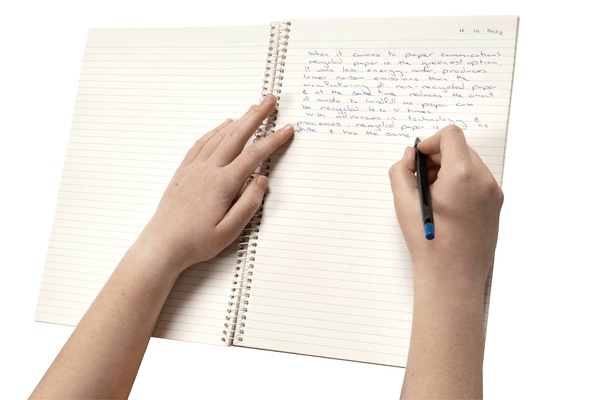 4 10 2022
When it comms to paper commications
recycled paper is the greenest option.
it uses less energy, water, produces
lower carbon emissions than the
manufacturing of non-recycled paper
& at the same time reduces the amout
of waste to landfill as paper can
be recycled 4 to 5 times.
With advances in technology &
processes, recycled paper is as
white & has the same